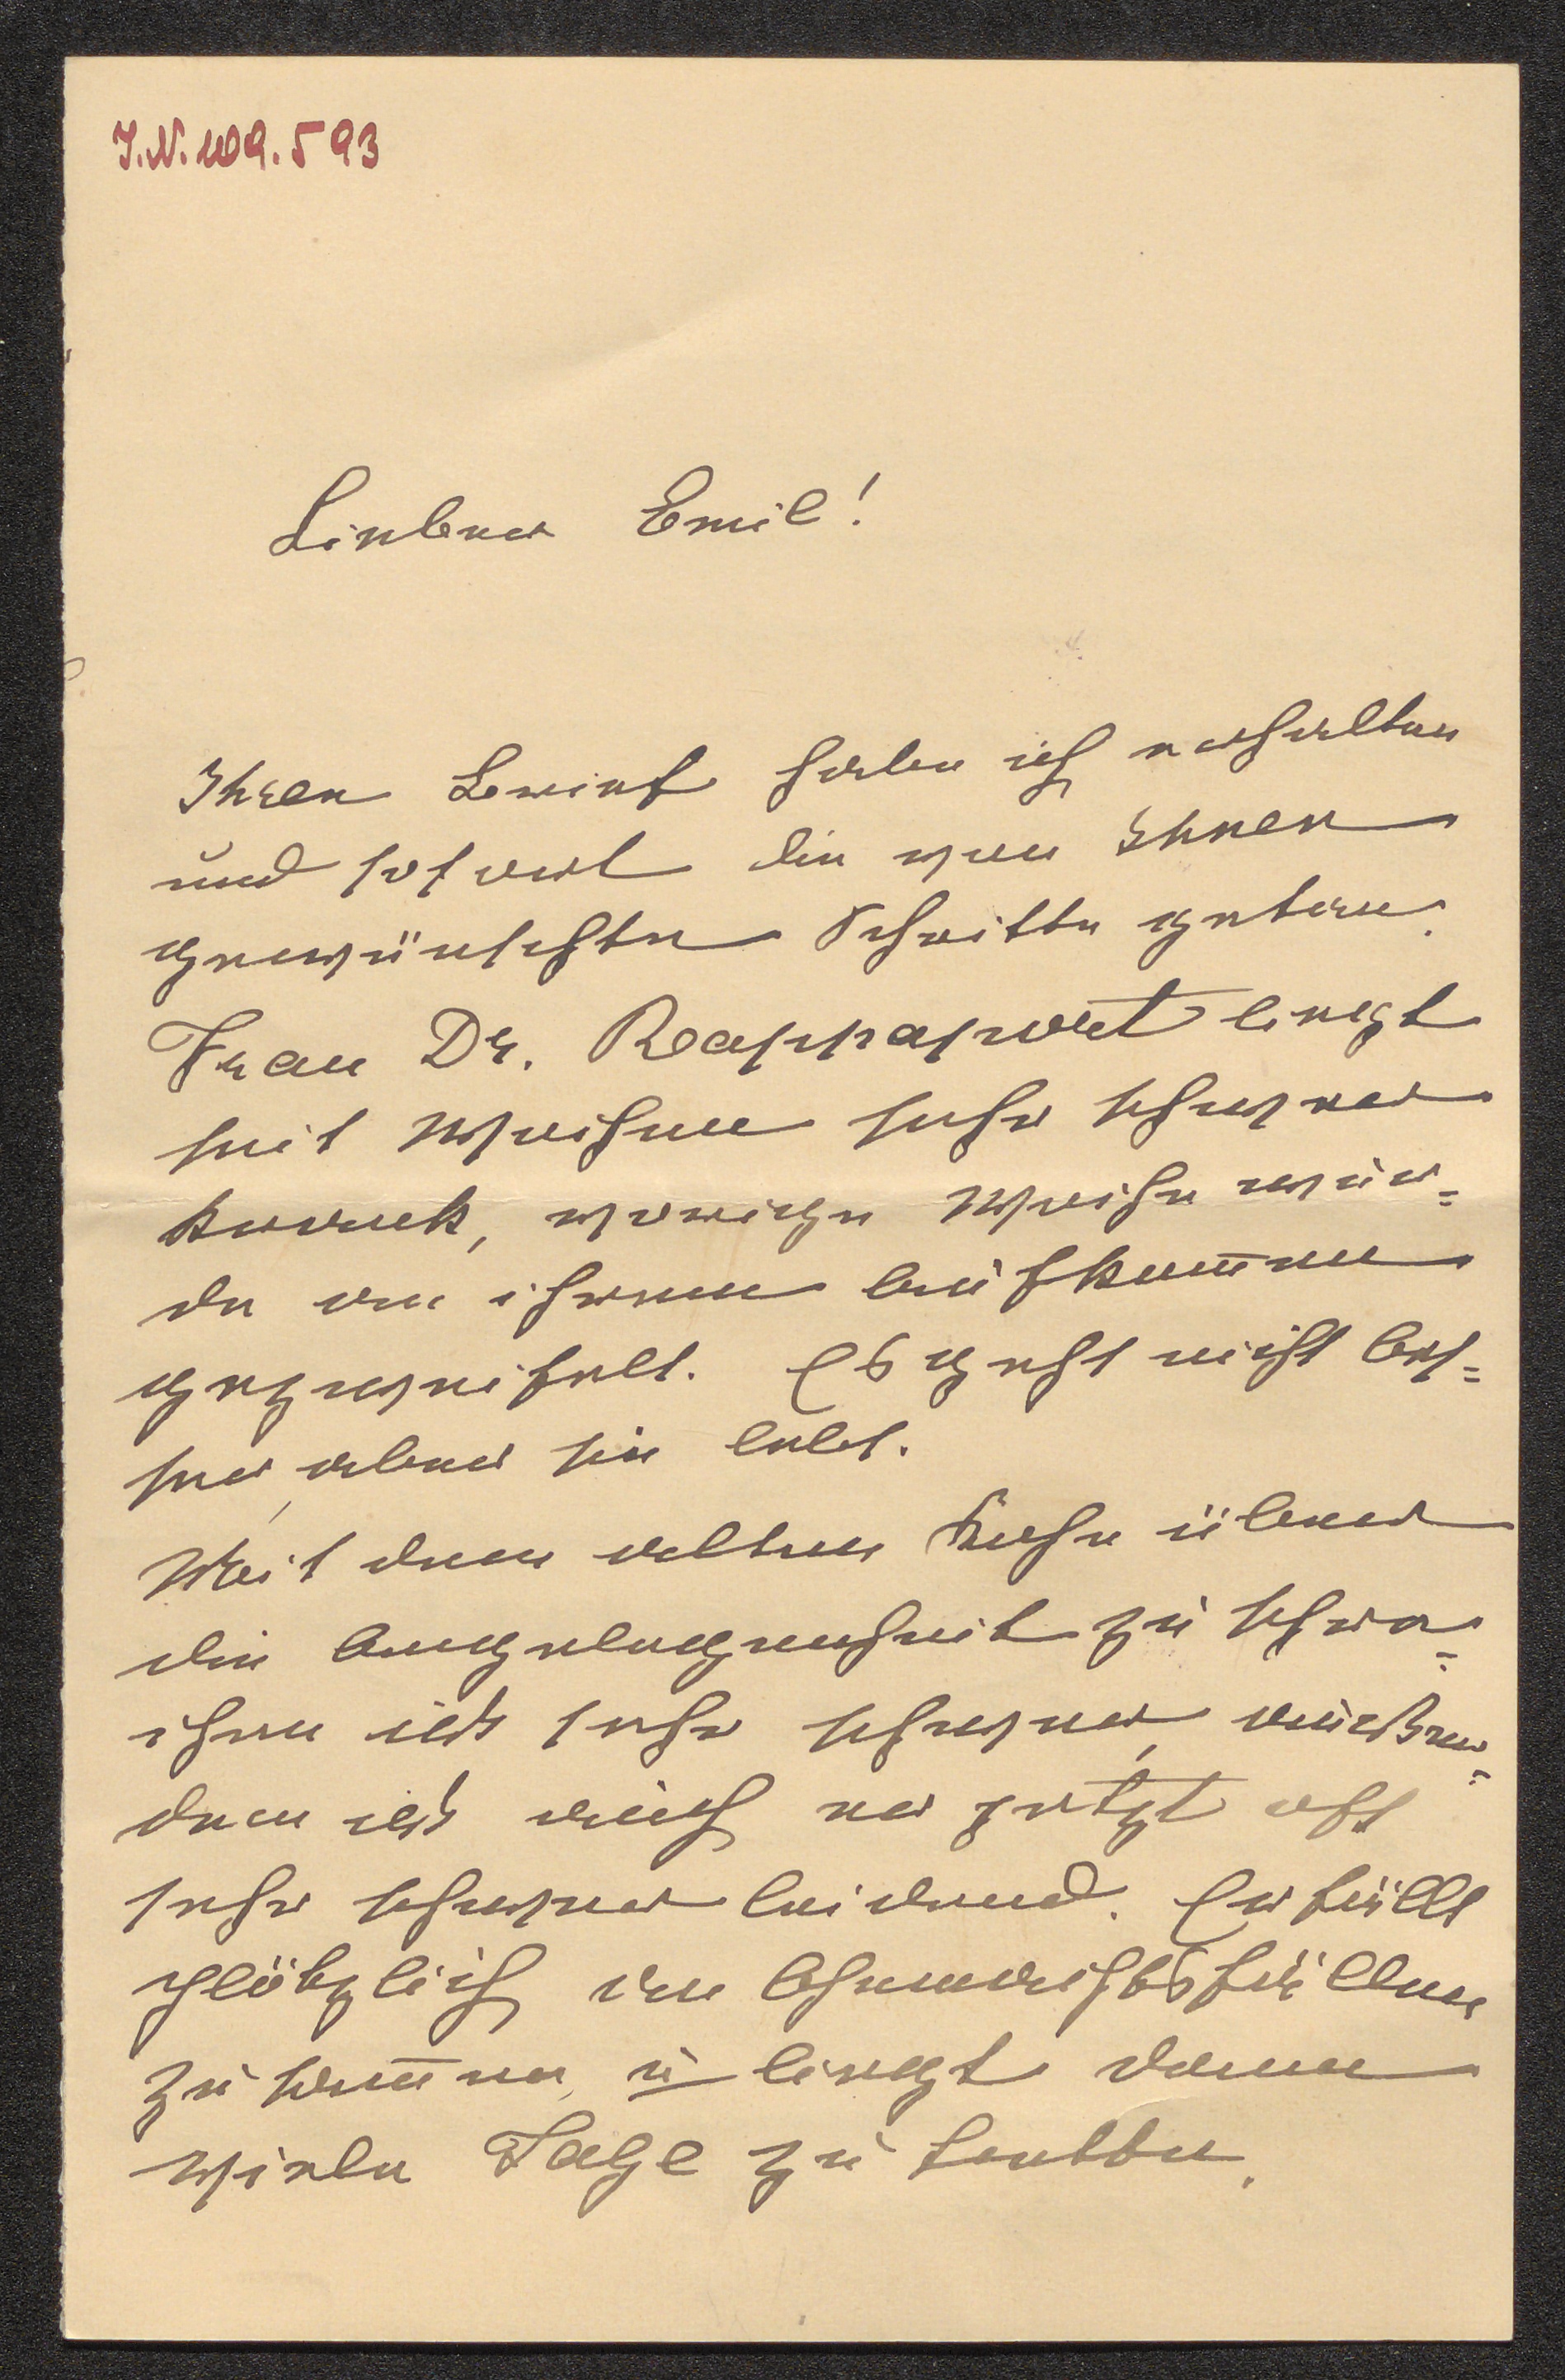 I.N. 109.593
Lieber Emil!
Ihren Brief habe ich erhalten
und sofort die von Ihnen
gewünschten Schritte getan.
Frau Dr. Rappaport liegt
seit Wochen sehr schwer
krank, vorige Woche wur=
de an ihrem Aufkommen
gezweifelt. Es geht nicht bes=
ser, aber sie lebt.
Mit dem alten Kuhn über
die Angelegenheit zu
ist sehr schwer, außer=
dem ist auch er jetzt oft
sehr schwer leidend. Er fällt
plötzlich in Ohnmachtsfällen
zusam̅en, u̲ liegt dann
viele Tage zu Bette.